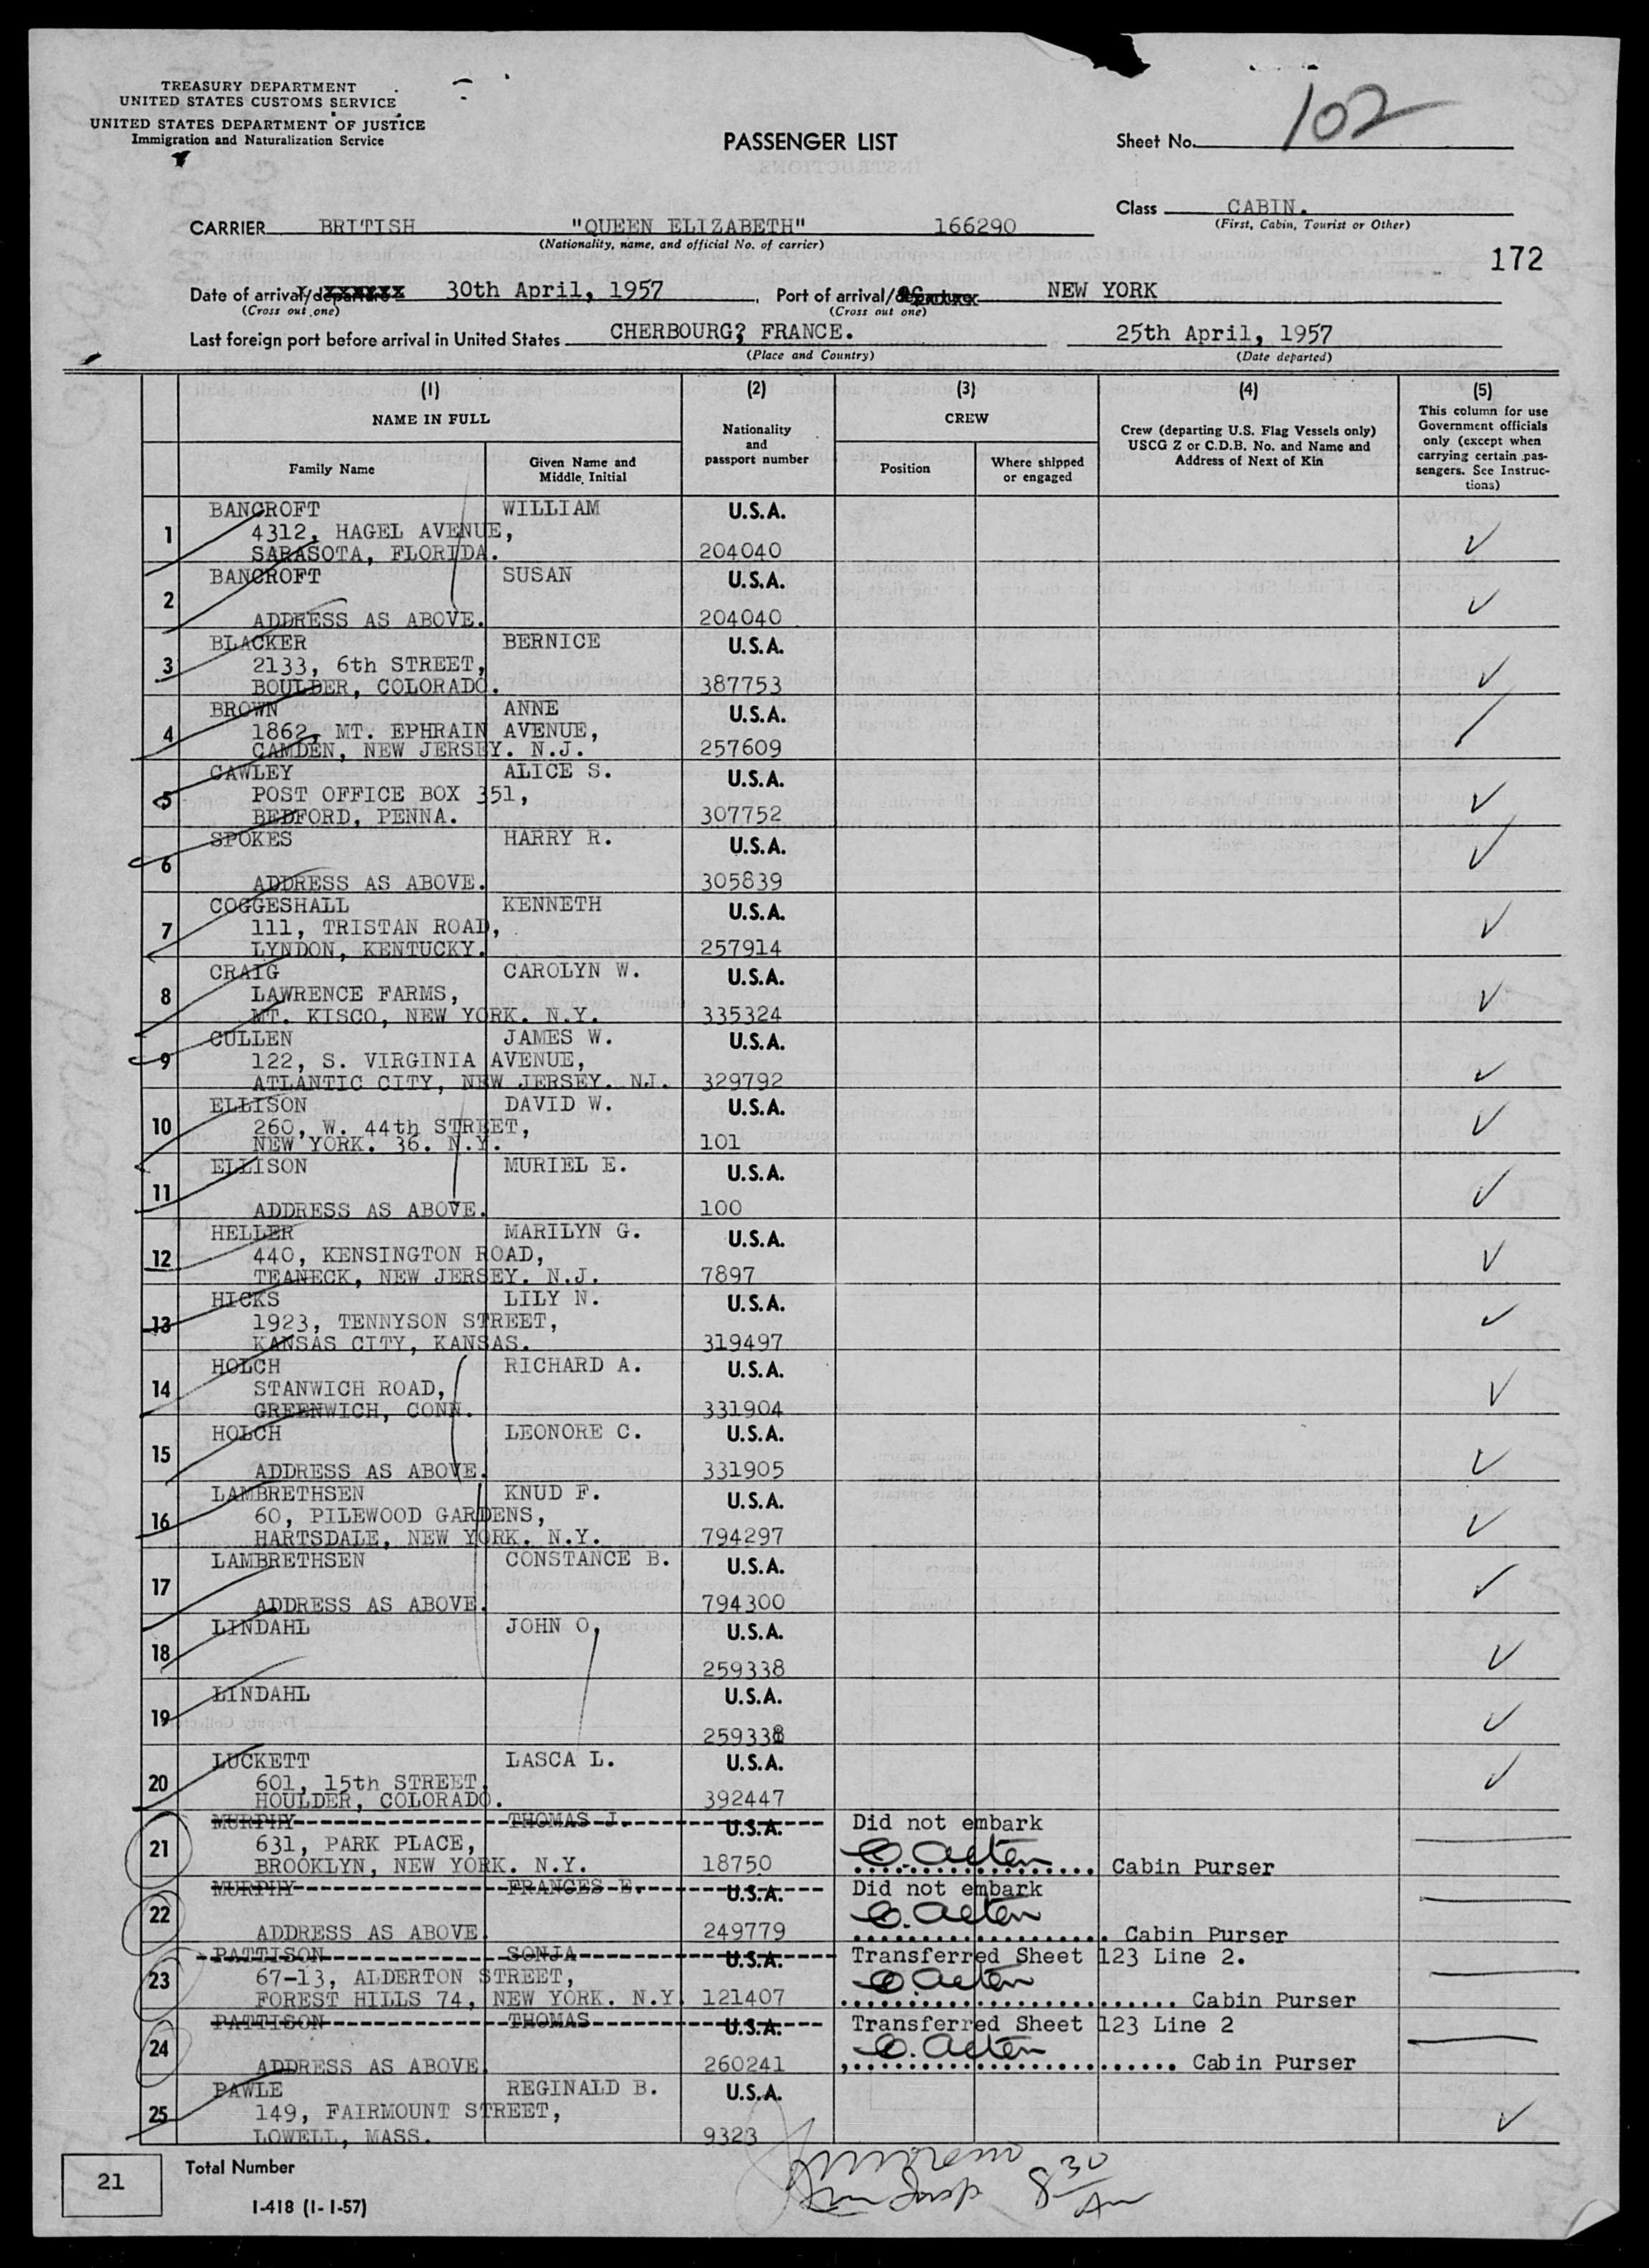 TREASURY DEPARTMENT
UNITED STATES CUSTOMS SERVICE
UNITED STATES DEPARTMENT OF JUSTICE
Immigration and Naturalization Service
PASSENGER LIST
Sheet No. 102
Class CABIN.
(First, Cabin, Tourist or Other)
CARRIER BRITISH "QUEEN ELIZABETH" 166290
(Nationality, name, and official No. of carrier)
172
Date of arrival/departure 30th April, 1957 Port of arrival/departure NEW YORK
(Cross out one) (Cross out one)
Last foreign port before arrival in United States CHERBOURG? FRANCE. 25th April, 1957
(Place and Country) (Date departed)
(1) (2) (3) (4) (5)
NAME IN FULL
Family Name
Given Name and Middle Initial
Nationality and passport number
CREW
Position
Where shipped or engaged
Crew (departing U.S. Flag Vessels only)
USCG Z or C.D.B. No. and Name and
Address of Next of Kin
This column for use
Government officials
only (except when
carrying certain pas-
sengers. See Instruc-
tions)
1 BANCROFT WILLIAM U.S.A.
4312, HAGEL AVENUE,
SARASOTA, FLORIDA. 204040
2 BANCROFT SUSAN U.S.A.
ADDRESS AS ABOVE. 204040
3 BLACKER BERNICE U.S.A.
2133, 6th STREET,
BOULDER, COLORADO. 387753
4 BROWN ANNE U.S.A.
1862, MT. EPHRAIN AVENUE,
CAMDEN, NEW JERSEY. N.J. 257609
5 CAWLEY ALICE S. U.S.A.
POST OFFICE BOX 351,
BEDFORD, PENNA. 307752
6 SPOKES HARRY R. U.S.A.
ADDRESS AS ABOVE. 305839
7 COGGESHALL KENNETH U.S.A.
111, TRISTAN ROAD,
LYNDON, KENTUCKY. 257914
8 CRAIG CAROLYN W. U.S.A.
LAWRENCE FARMS,
MT. KISCO, NEW YORK. N.Y. 335324
9 CULLEN JAMES W. U.S.A.
122, S. VIRGINIA AVENUE,
ATLANTIC CITY, NEW JERSEY. NJ. 329792
10 ELLISON DAVID W. U.S.A.
260, W. 44th STREET,
NEW YORK. 36. N.Y. 101
11 ELLISON MURIEL E. U.S.A.
ADDRESS AS ABOVE. 100
12 HELLER MARILYN G. U.S.A.
440, KENSINGTON ROAD,
TEANECK, NEW JERSEY. N.J. 7897
13 HICKS LILY N. U.S.A.
1923, TENNYSON STREET,
KANSAS CITY, KANSAS. 319497
14 HOLCH RICHARD A. U.S.A.
STANWICH ROAD,
GREENWICH, CONN. 331904
15 HOLCH LEONORE C. U.S.A.
ADDRESS AS ABOVE. 331905
16 LAMBRETHSEN KNUD F. U.S.A.
60, PILEWOOD GARDENS,
HARTSDALE, NEW YORK. N.Y. 794297
17 LAMBRETHSEN CONSTANCE B. U.S.A.
ADDRESS AS ABOVE. 794300
18 LINDAHL JOHN O, U.S.A.
259338
19 LINDAHL U.S.A.
259338
20 LUCKETT LASCA L. U.S.A.
601, 15th STREET,
HOULDER, COLORADO. 392447
21 MURPHY THOMAS J. U.S.A. Did not embark
631, PARK PLACE,
BROOKLYN, NEW YORK. N.Y. 18750 Cabin Purser
22 MURPHY FRANCES E. U.S.A. Did not embark
ADDRESS AS ABOVE 249779 Cabin Purser
23 PATTISON SONJA U.S.A. Transferred Sheet 123 Line 2.
67-13, ALDERTON STREET,
FOREST HILLS 74, NEW YORK. N.Y. 121407 Cabin Purser
24 PATTISON THOMAS U.S.A. Transferred Sheet 123 Line 2
ADDRESS AS ABOVE. 260241 Cabin Purser
25 PAWLE REGINALD B. U.S.A.
149, FAIRMOUNT STREET,
LOWELL, MASS. 9323
21 Total Number
I-418 (1-1-57)
8 30 Am